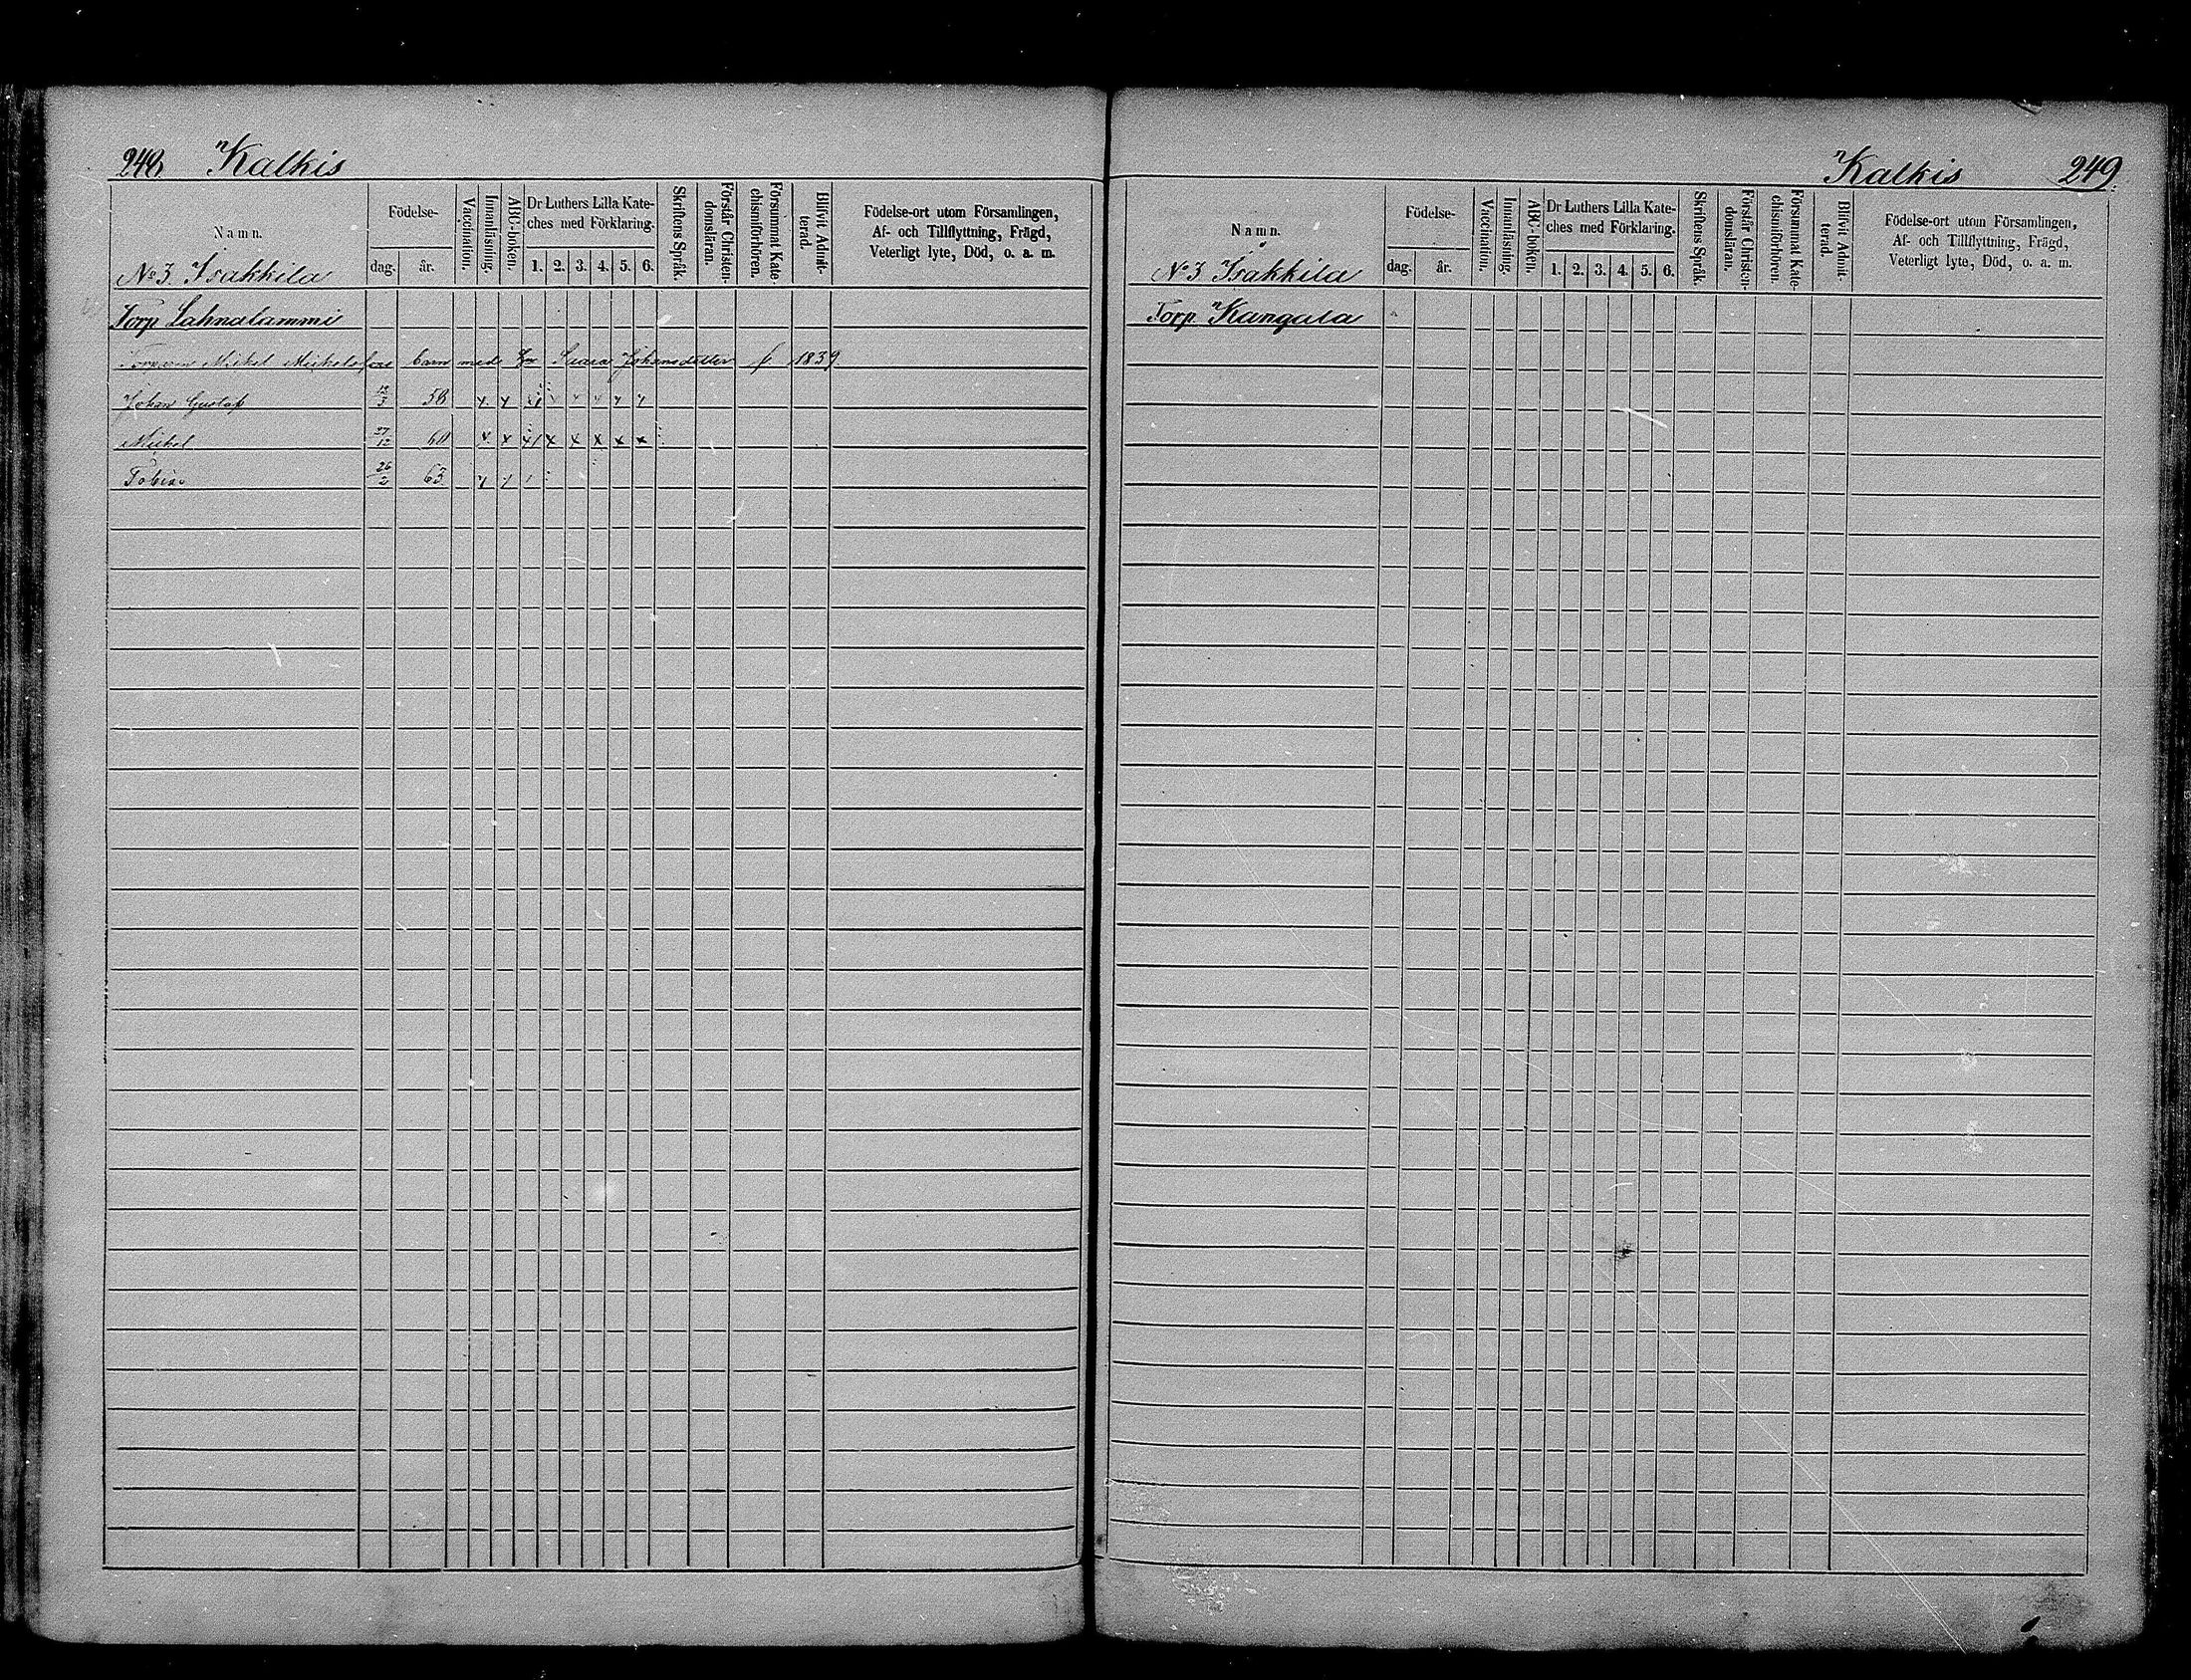 248. Kalkis
Namn.
Födelse-
dag. år.
Vaccination.
Innanläsning.
ABC-boken.
Dr Luthers Lilla Kate-
ches med Förklaring.
1. 2. 3. 4. 5. 6.
Skriftens Språk.
Förstår Christen-
domsläran.
Försummat Kate-
chismiförhören.
Blifvit Admit-
terad.
Födelse-ort utom Församlingen,
Af- och Tillflyttning, Frägd,
Veterligt lyte, Död, o. a. m.
No 3. Isakkila
Torp Lahnalammi
Mickel Mickelsson barn med Saara Johansdotter f 1839
Johan Gustaf 12/3 58 x x x1 x x x x x
Mickel 27/12 60 x x x1 x x x x x
Tobias 26/2 63. x x 1
Kalkis 249.
Namn.
Födelse-
dag. år.
Vaccination.
Innanläsning.
ABC-boken.
Dr Luthers Lilla Kate-
ches med Förklaring.
1. 2. 3. 4. 5. 6.
Skriftens Språk.
Förstår Christen-
domsläran.
Försummat Kate-
chismiförhören.
Blifvit Admit-
terad.
Födelse-ort utom Församlingen,
Af- och Tillflyttning, Frägd,
Veterligt lyte, Död, o. a. m.
No 3 Isakkila
Torp. Kangala